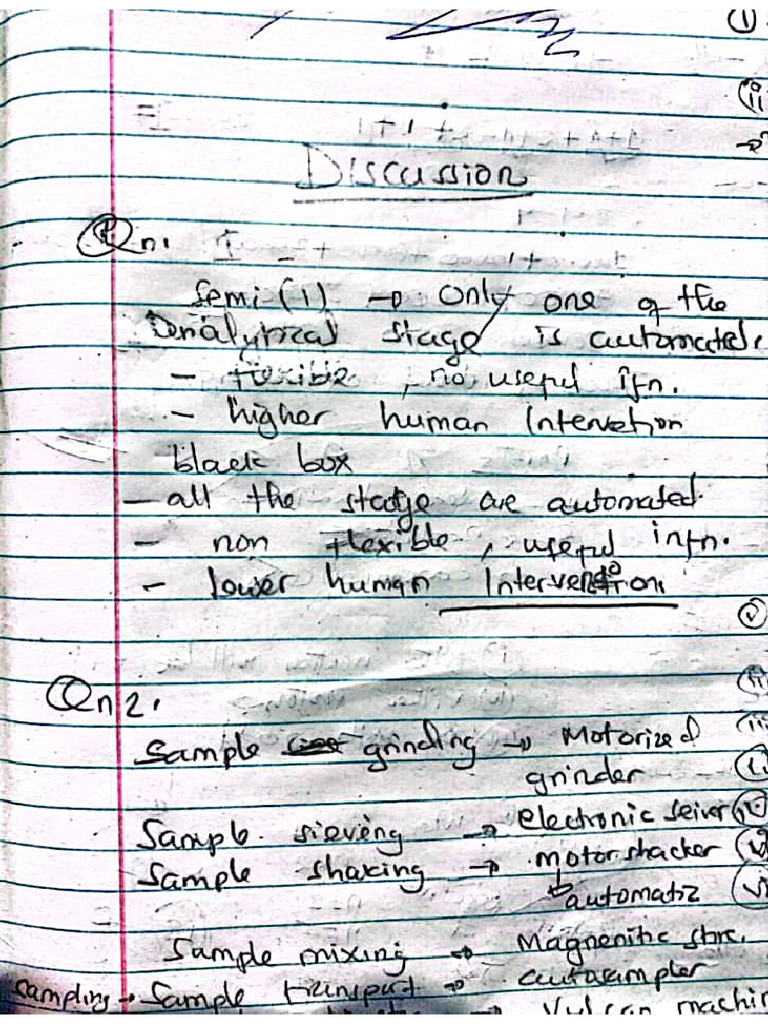 (i)
(ii)
Discussion
Qn. I
Semi (1) → Only one of the
analytical stage is automated.
- flexible, no useful ifn.
- higher human Intervetion
black box
- all the stage are automated.
- non flexible, useful infn.
- lower human Intervention
Qn 2.
Sample grinding → Motorized
grinder
Sample sieving → electronic seiver
Sample shaking → motor shacker
automatic
Sample mixing → Magnenitic stirc.
Sampling → Sample transport → autosampler
→ Vulcan machin